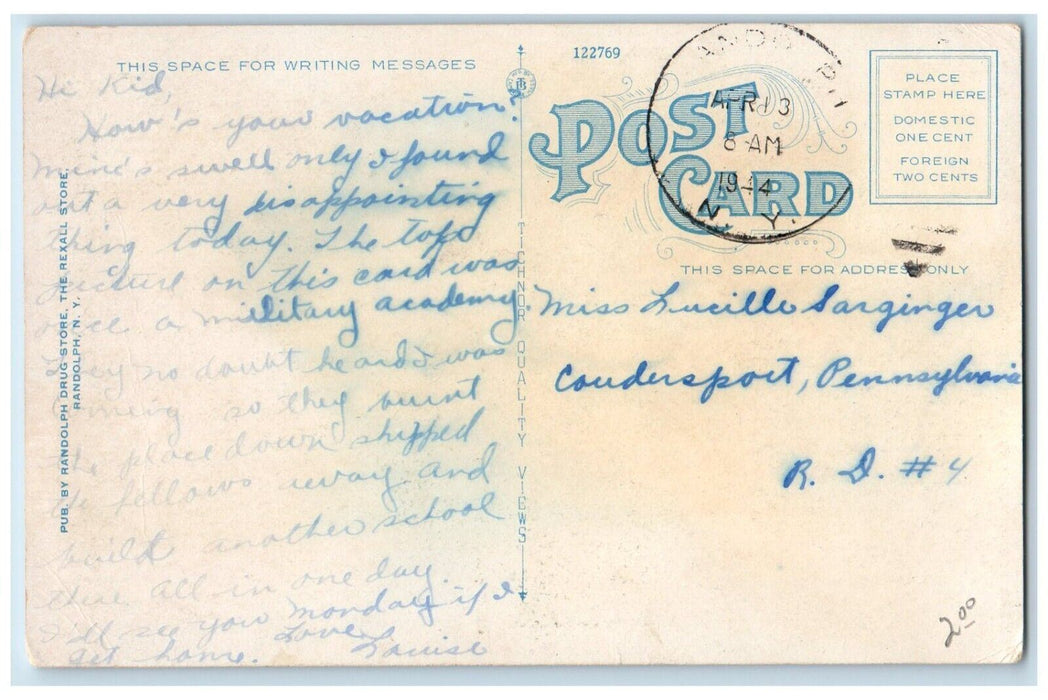 THIS SPACE FOR WRITING MESSAGES
Hi Kid,
How's your vacation?
Mine's swell only I found
out a very disappointing
thing today. The top
picture on this card was
once a military academy.
They no doubt heard I was
coming so they burnt
the place down shipped
de fellows away and
build another school
there all in one day.
I'll see you Monday if I
get home. Love
Louise
PUB. BY RANDOLPH DRUG STORE, THE REXALL STORE,
RANDOLPH, N. Y.
TICHNOR QUALITY VIEWS
122769
POST
CARD
RANDOLPH
APR 13
8 AM
1944
N. Y.
PLACE
STAMP HERE
DOMESTIC
ONE CENT
FOREIGN
TWO CENTS
THIS SPACE FOR ADDRESS ONLY
Miss Lucille Sarginger
Coudersport, Pennsylvania
R. D. #4
2.00